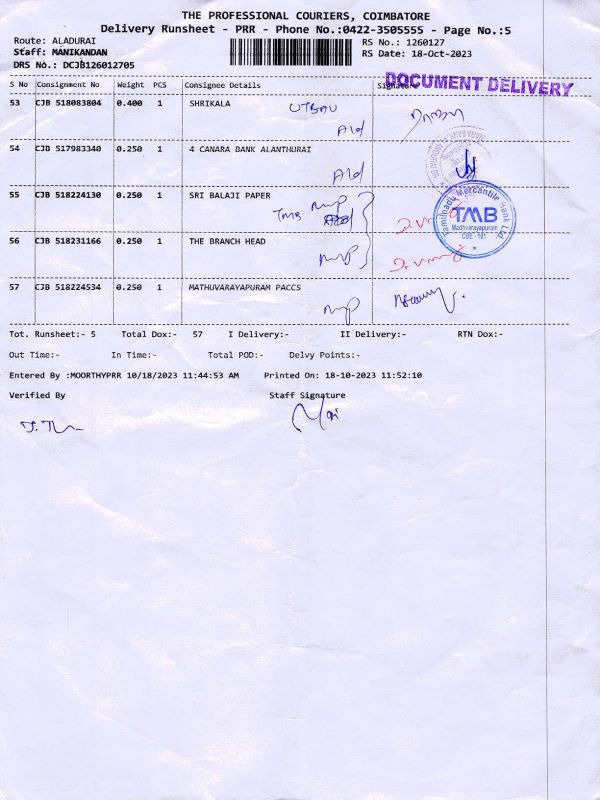 THE PROFESSIONAL COURIERS, COIMBATORE
Delivery Runsheet - PRR - Phone No.:0422-3505555 - Page No.:5
Route: ALADURAI RS No.: 1260127
Staff: MANIKANDAN RS Date: 18-Oct-2023
DRS No.: DCJB126012705
DOCUMENT DELIVERY
S No Consignment No Weight PCS Consignee Details Signature
53 CJB 518083804 0.400 1 SHRIKALA
Ald
54 CJB 517983340 0.250 1 4 CANARA BANK ALANTHURAI
Ald
55 CJB 518224130 0.250 1 SRI BALAJI PAPER
TMB
Tamilnadu Mercantile Bank Ltd
TMB
Madhvarayapuram
CBE - 101
56 CJB 518231166 0.250 1 THE BRANCH HEAD
57 CJB 518224534 0.250 1 MATHUVARAYAPURAM PACCS
Tot. Runsheet:- 5 Total Dox:- 57 I Delivery:- II Delivery:- RTN Dox:-
Out Time:- In Time:- Total POD:- Delvy Points:-
Entered By :MOORTHYPRR 10/18/2023 11:44:53 AM Printed On: 18-10-2023 11:52:10
Verified By Staff Signature